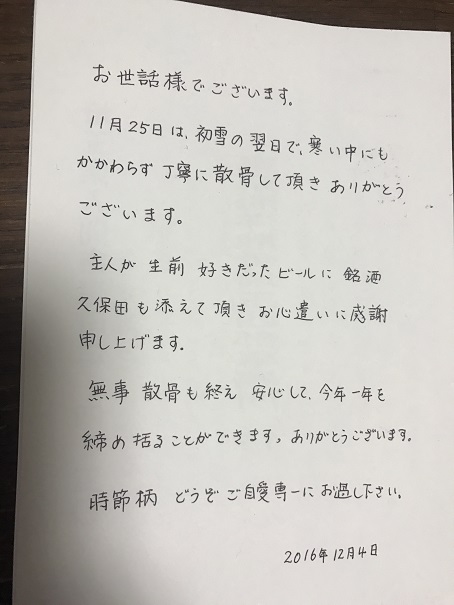 お世話様でございます。
11月25日は、初雪の翌日で、寒い中にも
かかわらず 丁寧に散骨して頂き ありがとう
ございます。
主人が 生前 好きだったビールに 銘酒
久保田も添えて頂き お心遣いに感謝
申し上げます。
無事 散骨も終え 安心して、今年一年を
締め括ることができます。ありがとうございます。
時節柄 どうぞご自愛専一にお過し下さい。
2016年12月4日